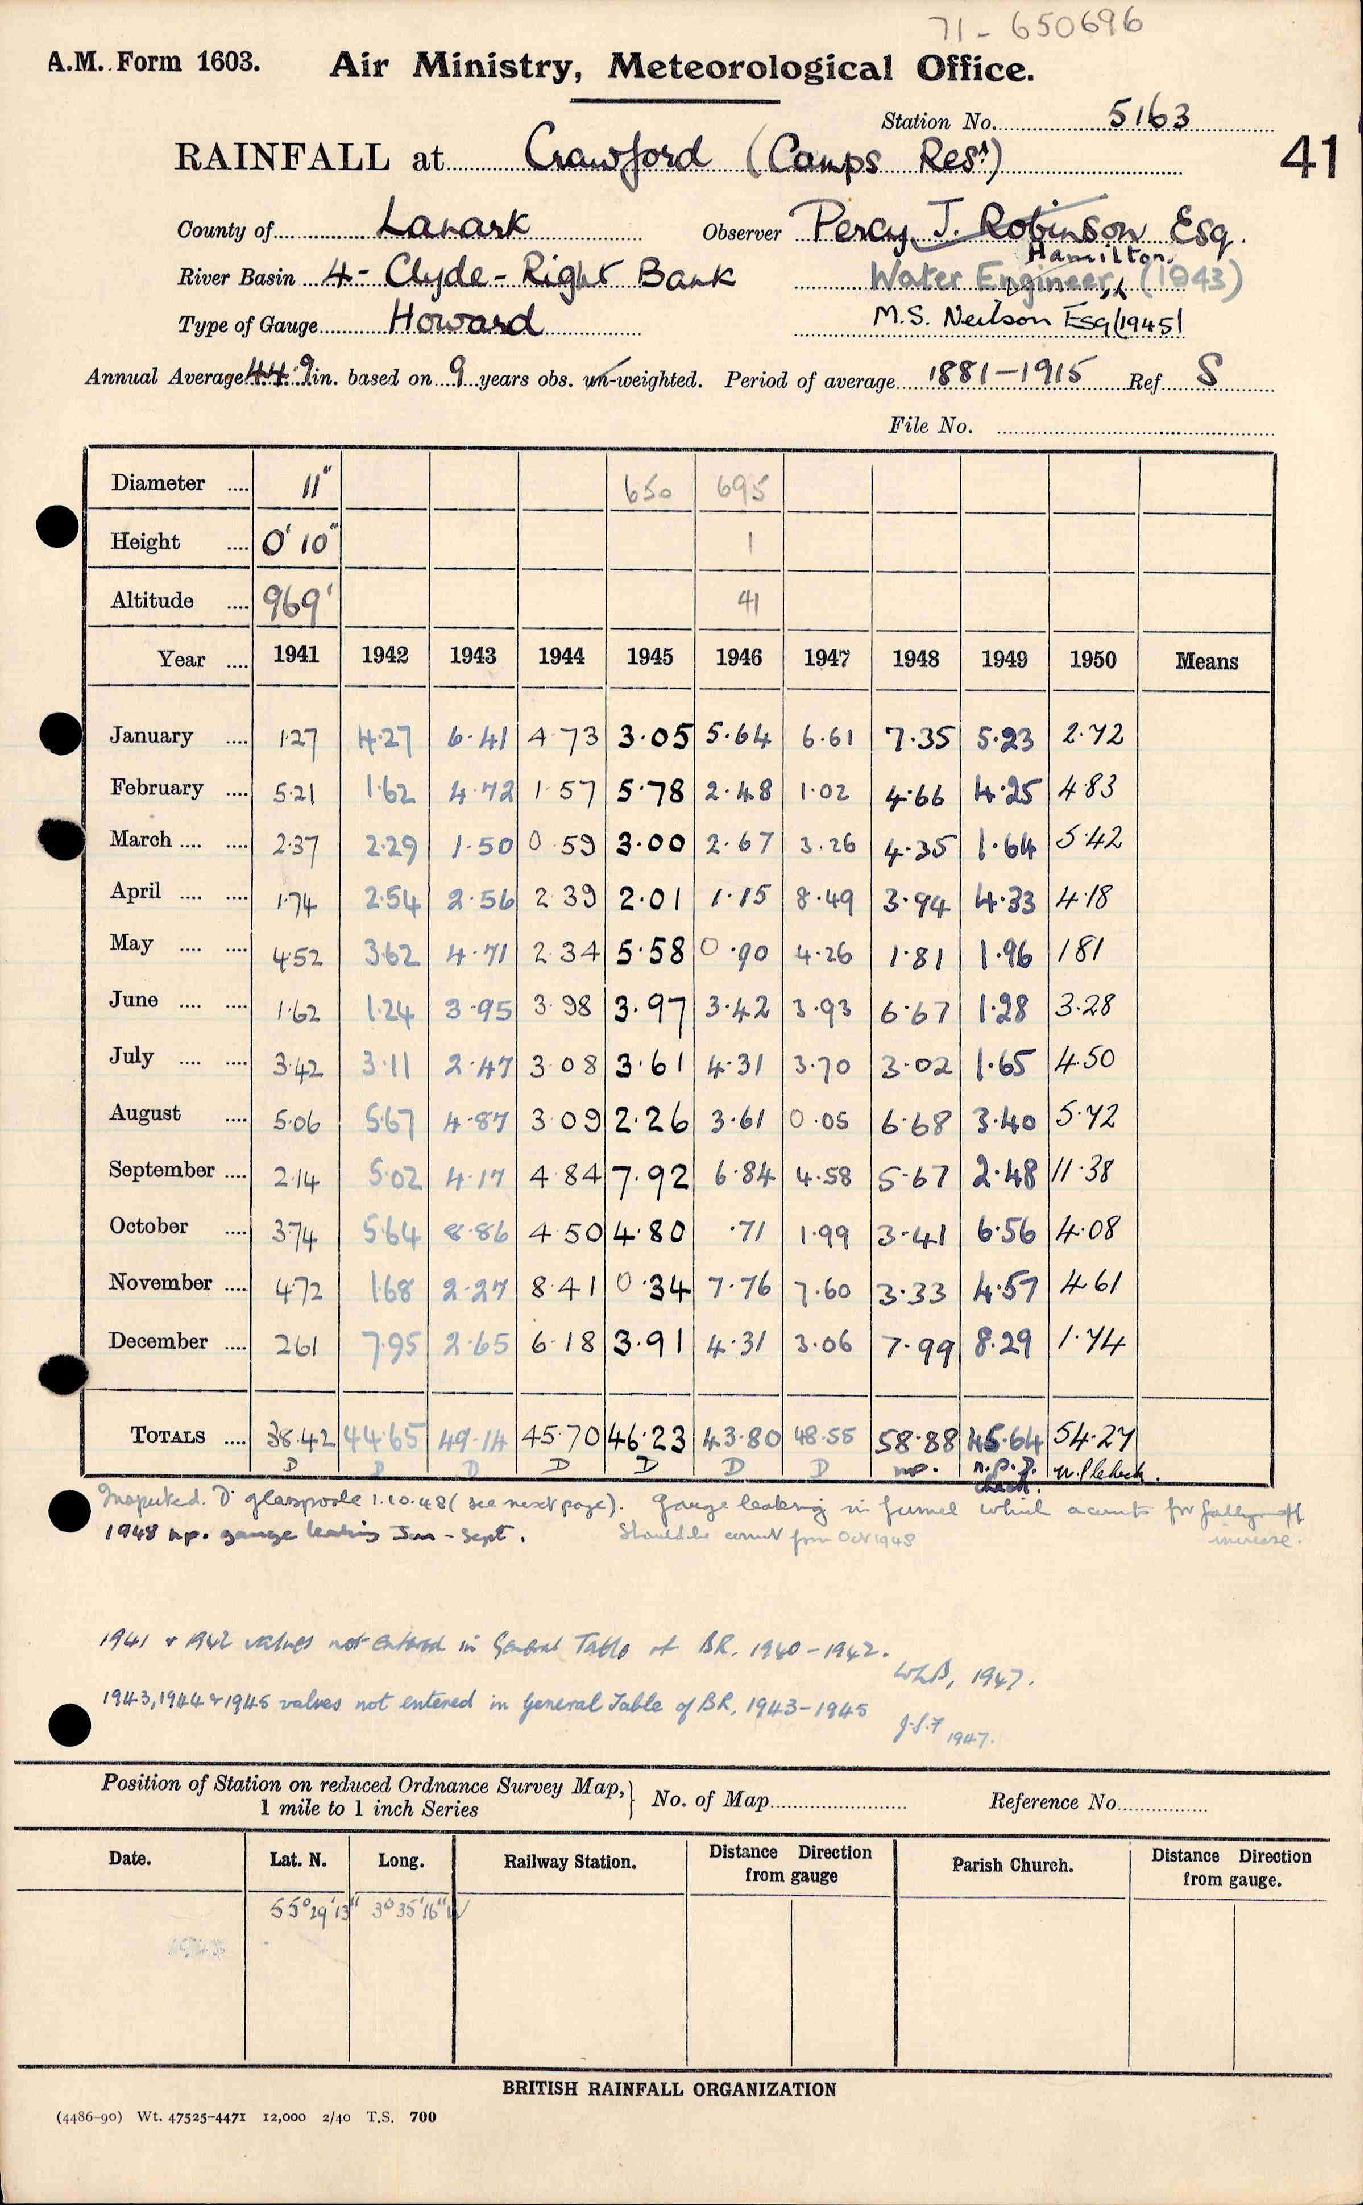 71 - 650696
A.M. Form 1603. Air Ministry, Meteorological Office.
Station No. 5163
RAINFALL at Crawford (Camps Resr) 41
County of Lanark Observer Percy J. Robinson Esq.
Hamilton.
River Basin 4 - Clyde - Right Bank Water Engineer, (1943)
Type of Gauge Howard M.S. Neilson Esq (1945)
Annual Average 44.9 in. based on 9 years obs. un-weighted. Period of average 1881-1915 Ref S
File No.
Diameter .... 11" 650 695
Height .... 0' 10" 1
Altitude .... 969' 41
Year .... 1941 1942 1943 1944 1945 1946 1947 1948 1949 1950 Means
January .... 1.27 4.27 6.41 4.73 3.05 5.64 6.61 7.35 5.23 2.72
February .... 5.21 1.62 4.72 1.57 5.78 2.48 1.02 4.66 4.25 4.83
March .... .... 2.37 2.29 1.50 0.59 3.00 2.67 3.26 4.35 1.64 5.42
April .... .... 1.74 2.54 2.56 2.39 2.01 1.15 8.49 3.94 4.33 4.18
May .... .... 4.52 3.62 4.71 2.34 5.58 0.90 4.26 1.81 1.96 1.81
June .... .... 1.62 1.24 3.95 3.98 3.97 3.42 3.93 6.67 1.28 3.28
July .... .... 3.42 3.11 2.47 3.08 3.61 4.31 3.70 3.02 1.65 4.50
August .... 5.06 5.67 4.87 3.09 2.26 3.61 0.05 6.68 3.40 5.72
September .... 2.14 5.02 4.17 4.84 7.92 6.84 4.58 5.67 2.48 11.38
October .... 3.74 5.64 8.86 4.50 4.80 .71 1.99 3.41 6.56 4.08
November .... 4.72 1.68 2.27 8.41 0.34 7.76 7.60 3.33 4.57 4.61
December .... 2.61 7.95 2.65 6.18 3.91 4.31 3.06 7.99 8.29 1.74
TOTALS .... 38.42 44.65 49.14 45.70 46.23 43.80 48.55 58.88 45.64 54.27
D D D D D D D n.p. n.p.D. n.p. check.
check.
Inspected. D. Glasspoole 1.10.48 (see next page). Gauge leaking in funnel which accounts for
1948 n.p. gauge leaking Jan - Sept. Should be correct from Oct 1948 increase.
1941 & 1942 values not entered in General Table of B.R. 1940-1942.
1947.
1943, 1944 & 1945 values not entered in General Table of B.R. 1943-1945
J.S.F 1947.
Position of Station on reduced Ordnance Survey Map, } No. of Map Reference No.
1 mile to 1 inch Series
Date. Lat. N. Long. Railway Station. Distance Direction from gauge Parish Church. Distance Direction from gauge.
55° 29' 13" 3° 35' 16" W
BRITISH RAINFALL ORGANIZATION
(4486-90) Wt. 47525-4471 12,000 2/40 T.S. 700